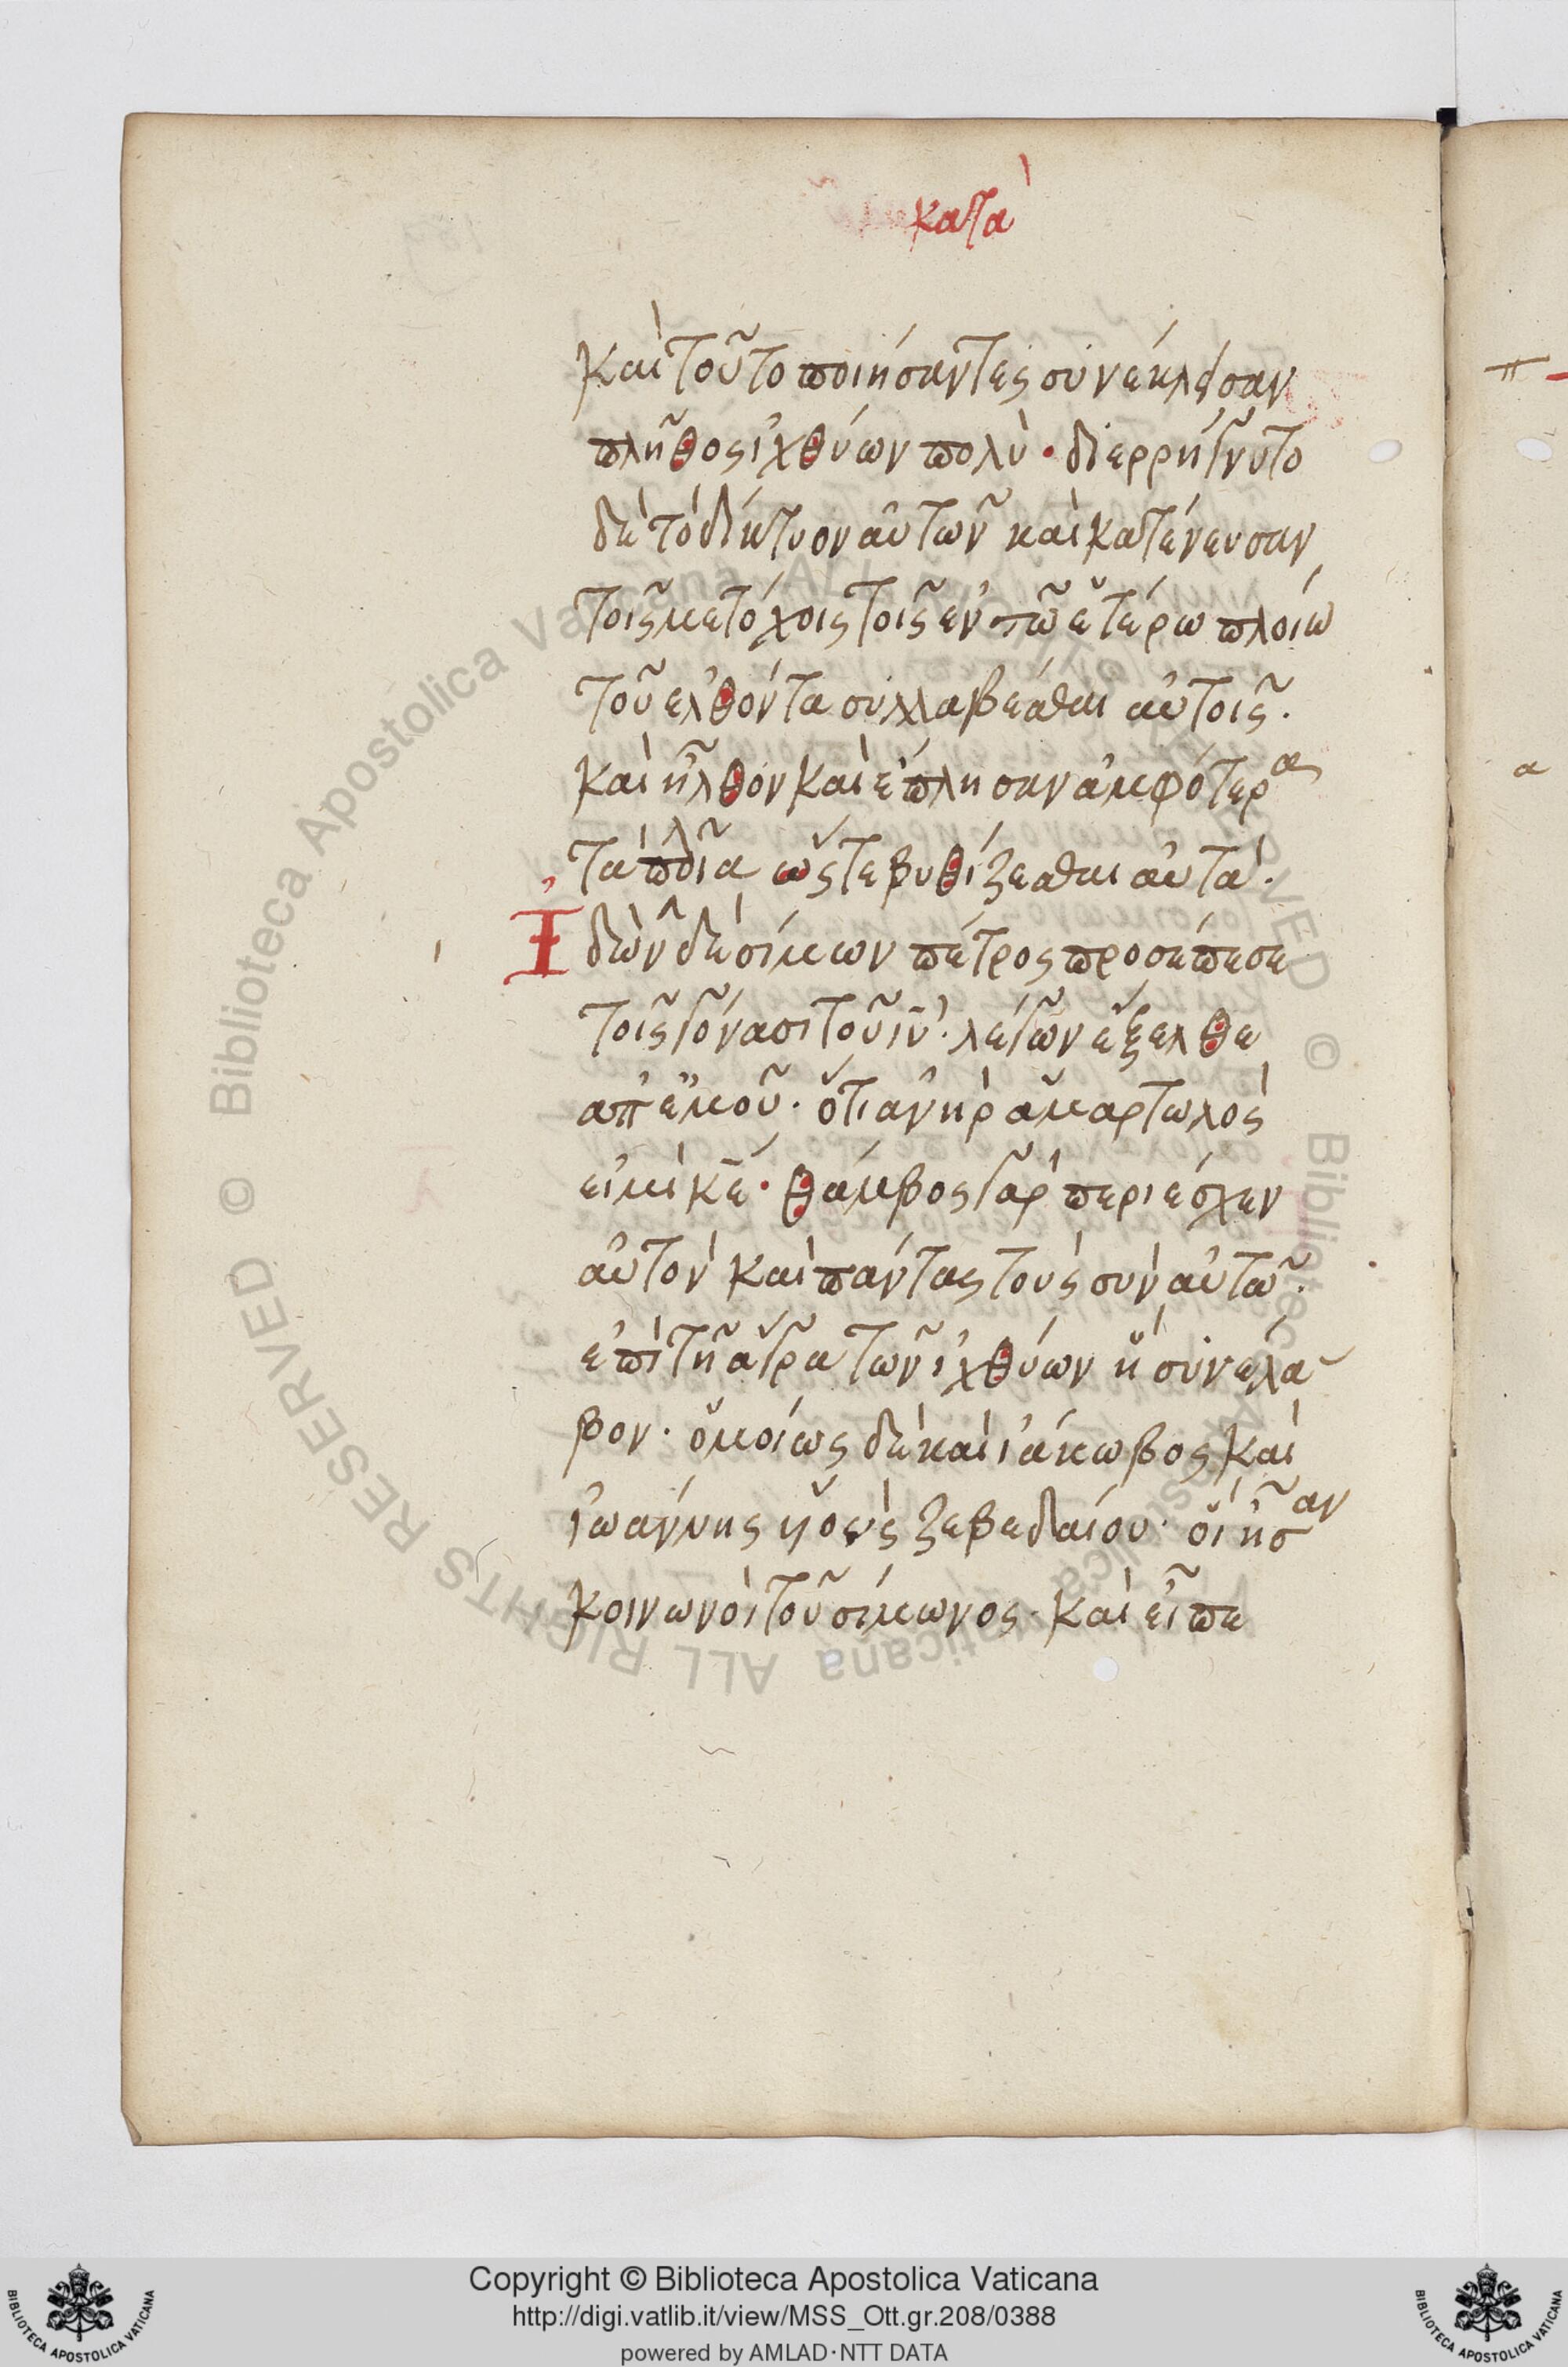 κατὰ
Καὶ τοῦτο ποιήσαντες συνέκλεισαν
πλῆθος ἰχθύων πολύ· διερρήγνυτο
δὲ τὸ δίκτυον αὐτῶν καὶ κατένευσαν
τοῖς μετόχοις τοῖς ἐν τῶ ἑτέρω πλοίω
τοῦ ἐλθόντα συλλαβέσθαι αὐτοῖς.
καὶ ἦλθον καὶ ἔπλησαν ἀμφότερα
τὰ πλοῖα ὥστε βυθίζεσθαι αὐτά.
Ἰδὼν δὲ σίμων πέτρος προσέπεσε
τοῖς γόνασι τοῦ ιυ· λέγων ἔξελθε
ἀπ ἐμοῦ· ὅτι ἀνὴρ ἁμαρτωλός
εἰμὶ κε· θάμβος γὰρ περιέσχεν
αὐτὸν καὶ πάντας τοὺς σὺν αὐτῶ·
ἐπὶ τῆ ἄγρα τῶν ἰχθύων ἣ συνέλα
βον· ὁμοίως δὲ καὶ ἰάκωβος καὶ
ἰωάννης υἱοὺς ζεβεδαίου· οἳ ἦσαν
κοινωνοὶ τοῦ σίμωνος· καὶ εἶπε
π
α
BIBLIOTECA APOSTOLICA VATICANA
Copyright © Biblioteca Apostolica Vaticana
http://digi.vatlib.it/view/MSS_Ott.gr.208/0388
powered by AMLAD·NTT DATA
BIBLIOTECA APOSTOLICA VATICANA
© Biblioteca Apostolica Vaticana ALL RIGHTS RESERVED © Biblioteca Apostolica Vaticana ALL RIGHTS RESERVED